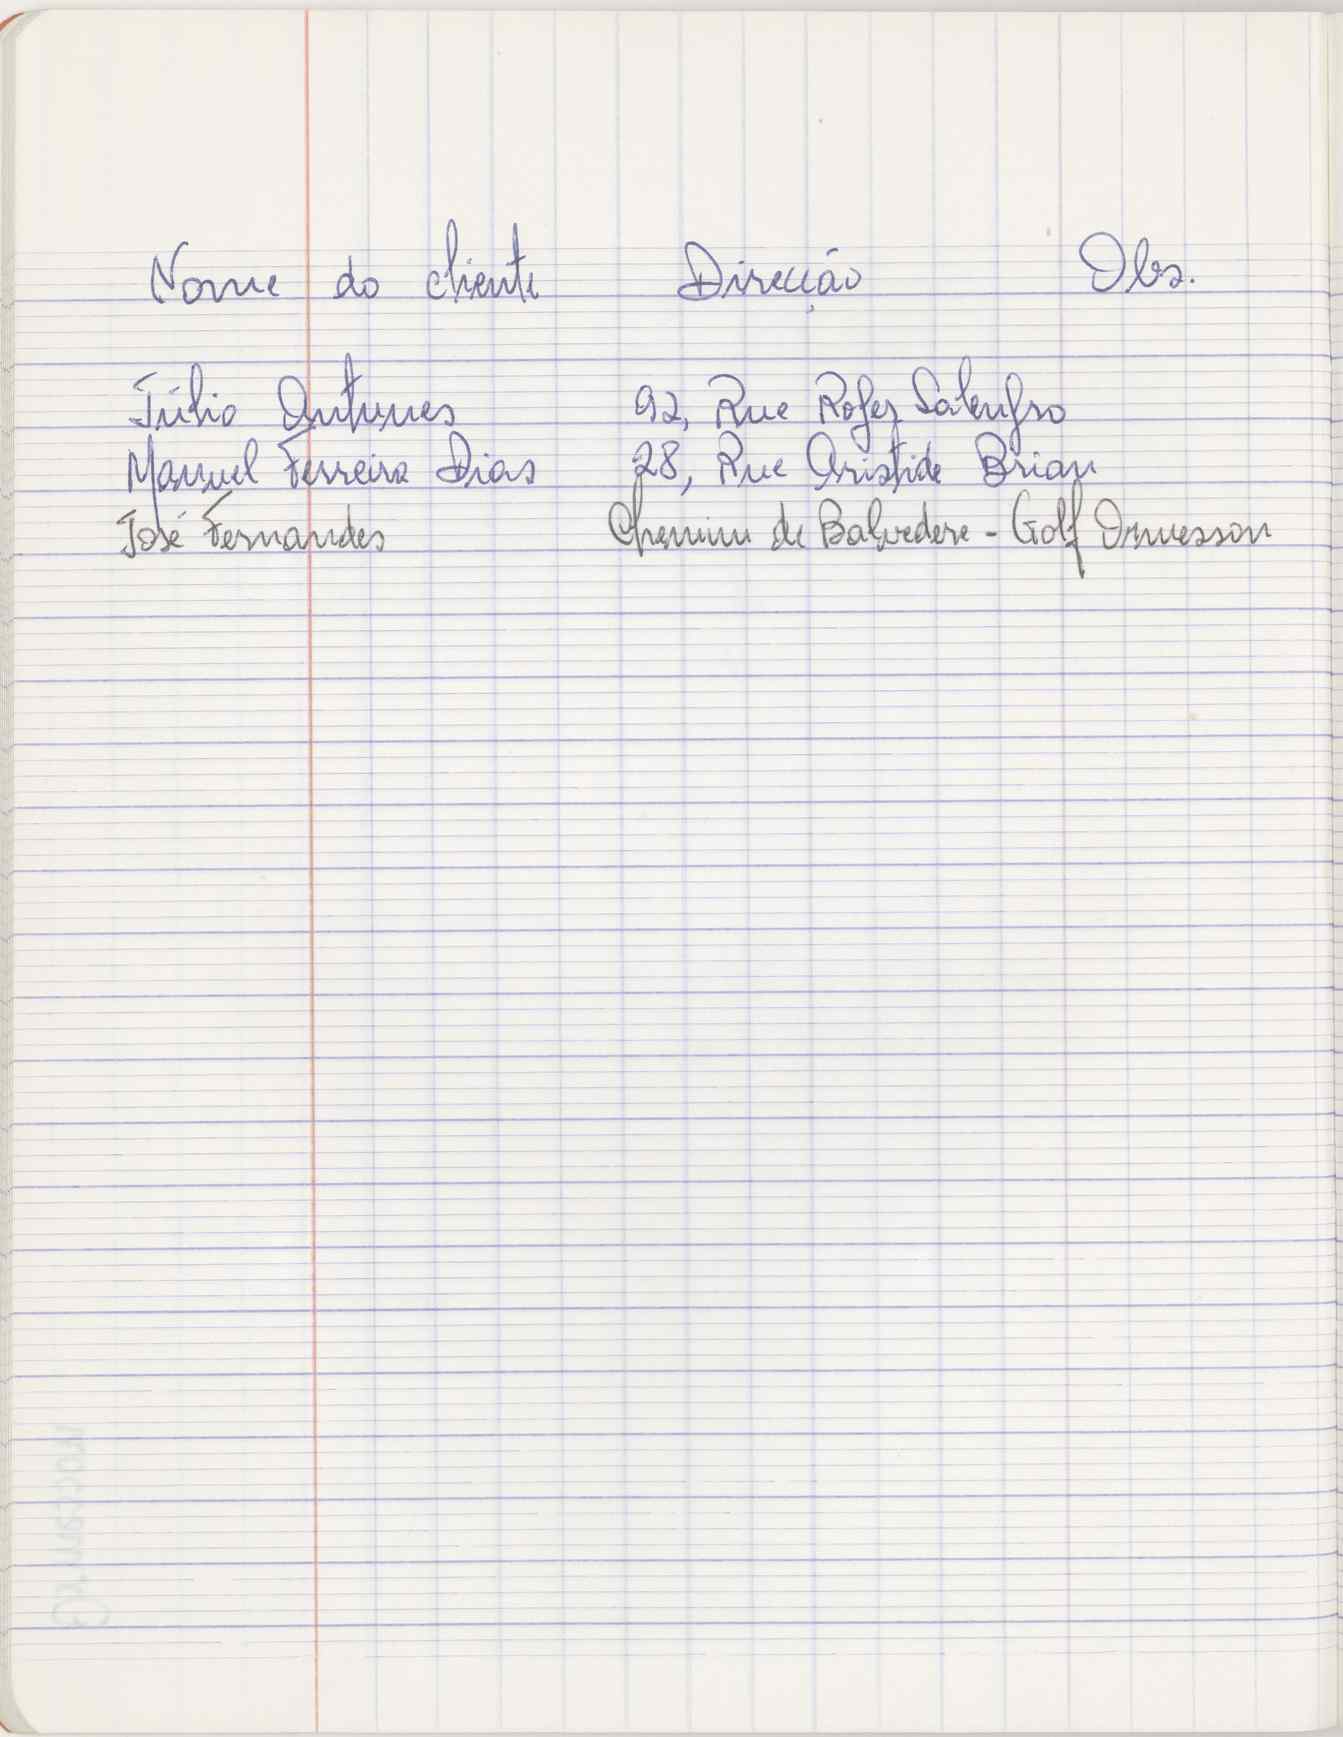 Nome do cliente Direcção Obs.
Júlio Antunes 92, Rue Roger Salengro
Manuel Ferreira Dias 28, Rue Aristide Brian
José Fernandes Chemim de Balvedere - Golf Ormesson